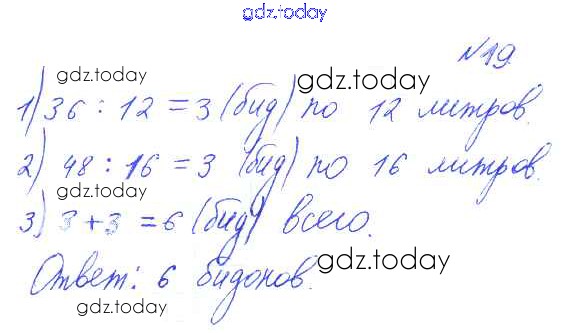 gdz.today
№19.
gdz.today
gdz.today
1) 36 : 12 = 3 (бид) по 12 литров.
2) 48 : 16 = 3 (бид) по 16 литров.
gdz.today
3) 3 + 3 = 6 (бид) всего.
gdz.today
Ответ: 6 бидонов.
gdz.today